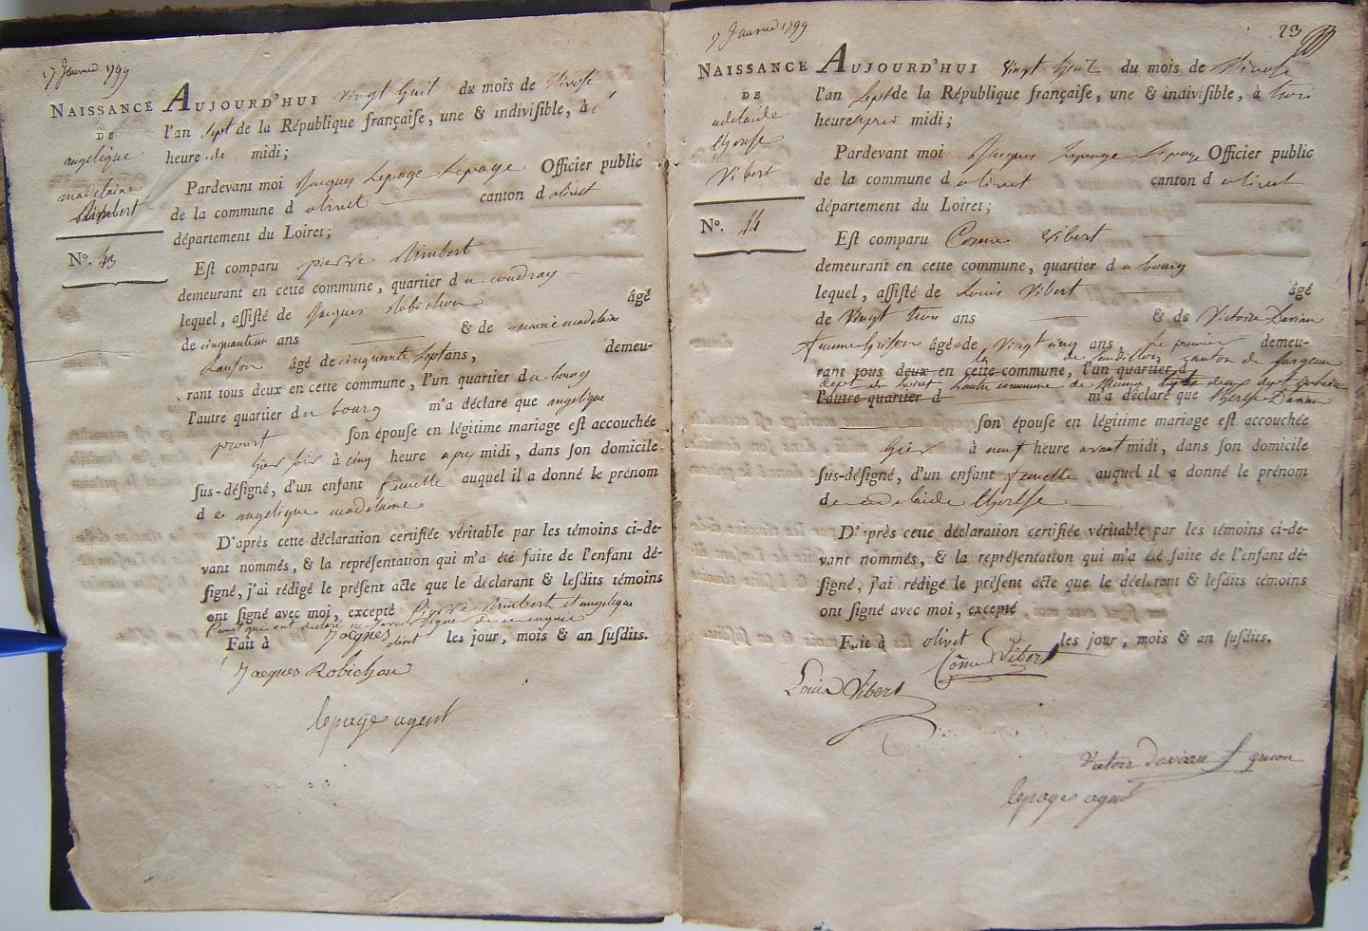 17 Janvier 1799
NAISSANCE
DE
angelique
madelaine
Rimbert
No. 43
AUJOURD'HUI vingt huit du mois de Nivose
l'an sept de la République françaiſe, une & indiviſible, à
heure de midi;
Pardevant moi Jacques Lepage Lepage Officier public
de la commune d olivet canton d olivet
département du Loiret;
Eſt comparu pierre Rimbert
demeurant en cette commune, quartier d u coudray
lequel, aſſiſté de Jacques Robichon âgé
de cinquante un ans & de marie madelaine
âgé de cinquante sept ans, demeu-
rant tous deux en cette commune, l'un quartier d u bourg
l'autre quartier d u bourg m'a déclaré que angelique
proust ſon épouse en légitime mariage eſt accouchée
hier soir à cinq heure apres midi, dans ſon domicile
ſus-déſigné, d'un enfant femelle auquel il a donné le prénom
d e angelique madelaine
D'après cette déclaration certifiée véritable par les témoins ci-de-
vant nommés, & la repréſentation qui m'a été faite de l'enfant dé-
ſigné, j'ai rédigé le préſent acte que le déclarant & leſdits témoins
ont ſigné avec moi, excepté Pierre Rimbert et angelique
Fait à les jour, mois & an ſuſdits.
Jacques Robichon
lepage agent
17 Janvier 1799
23
NAISSANCE
DE
adelaide
therese
Vibert
No. 44
AUJOURD'HUI vingt huit du mois de Nivose
l'an sept de la République françaiſe, une & indiviſible, à trois
heure apres midi;
Pardevant moi Jacques Lepage Lepage Officier public
de la commune d olivet canton d olivet
département du Loiret;
Eſt comparu Come Vibert
demeurant en cette commune, quartier d u bourg
lequel, aſſiſté de Louis Vibert âgé
de vingt trois ans & de Victoire Daveau
femme âgé de vingt cinq ans le premier demeu-
rant tous deux en cette commune, l'un quartier d
l'autre quartier d m'a déclaré que therese
ſon épouse en légitime mariage eſt accouchée
hier à neuf heure avant midi, dans ſon domicile
ſus-déſigné, d'un enfant femelle auquel il a donné le prénom
d e adelaide therese
D'après cette déclaration certifiée véritable par les témoins ci-de-
vant nommés, & la repréſentation qui m'a été faite de l'enfant dé-
ſigné, j'ai rédigé le préſent acte que le déclarant & leſdits témoins
ont ſigné avec moi, excepté
Fait à olivet les jour, mois & an ſuſdits.
Côme Vibert
Louis Vibert
lepage agent